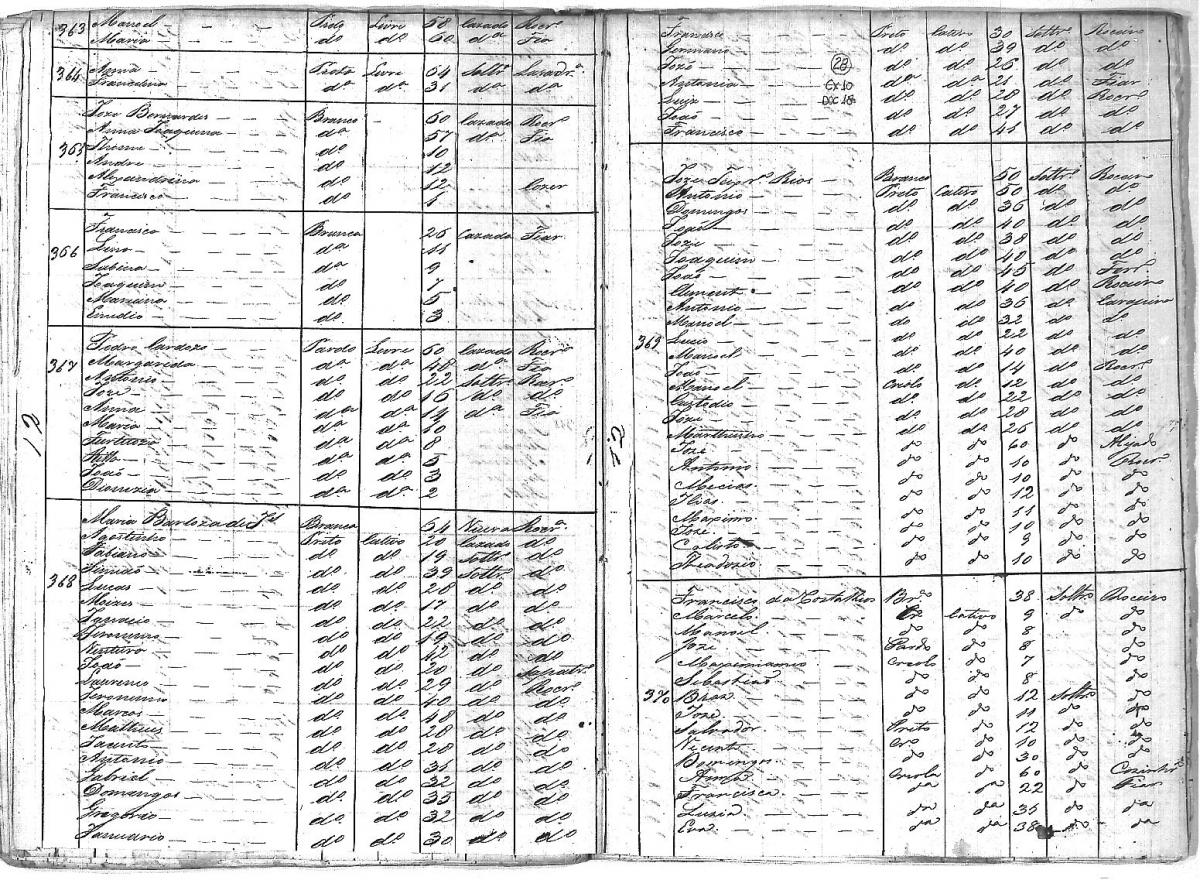 363 Manoel Preto Livre 58 Cazado Rocr.º
Maria dº dº 60 dª Fia
364 Anna Preta Livre 64 Soltr.ª Lavadr.ª
Francelina dª dª 31 dª dª
Joze Bernardes Branco 60 Cazado Rocr.º
Anna Joaquina dª 57 dª Fia
365 dº 10
Andre dº 12
Alexandrina dº 12 Cozer
Francisco dº 6
Francisca Branca 26 Cazada Fiar
366 Lino dª 11
Sabina dª 9
Joaquim dº 7
Mariana dº 5
Emidio dº 3
Pedro Cardozo Pardo Livre 60 Cazado Rocr.º
367 Margarida dª dª 48 dª Fia
Antonio dº dº 22 Soltr.º Rocr.º
Joze dº dº 16 dº dº
Anna dª dª 14 dª Fia
Maria dª dª 10
dª dª 8
dª dª 5
João dº dº 3
Dionizia dª dª 2
12
Maria Barboza de Jˢ Branca 54 Viuva Rocr.ª
Agostinho Preto Cativo 20 Cazado dº
Fabiano dº dº 19 Soltr.º dº
Simião dº dº 39 Soltr.º dº
368 Lucas dº dº 28 dº dº
Moizes dº dº 17 dº dº
Ignacio dº dº 22 dº dº
Jeronimo dº dº 49 dº dº
Venturo dº dº 42 dº dº
João dº dº 20 dº Sapatr.º
Laurenço dº dº 29 dº Rocr.º
Jeronimo dº dº 40 dº dº
Marcos dº dº 48 dº dº
Matheus dº dº 28 dº dº
Jacinto dº dº 28 dº dº
Antonio dº dº 34 dº dº
Gabriel dº dº 32 dº dº
Domingos dº dº 35 dº dº
Gregorio dº dº 32 dº dº
Januario dº dº 30 dº dº
Francisco Preto Cativo 30 Soltr.º Roceiro
Germano dº dº 39 dº dº
28
Joze dº dº 26 dº dº
Antonia dª dª 21 dª Fiar
CX 10
Luiz dº dº 28 dº Rocr.º
DOC 18
João dº dº 27 dº dº
Francisco dº dº 41 dº dº
Joze Rios Branco 50 Soltr.º Roceiro
Antonio Preto Cativo 50 dº dº
Domingos dº dº 36 dº dº
João dº dº 40 dº dº
Joze dº dº 38 dº dº
Joaquim dº dº 40 dº dº
João dº dº 45 dº Ferr.º
Clement dº dº 40 dº Roceiro
Antonio dº dº 36 dº Cargueiro
Manoel dº dº 32 dº dº
369 Lucio dº dº 22 dº dº
Manoel dº dº 40 dº dº
João dº dº 14 dº Rocr.º
Manoel Criolo dº 12 dº dº
Custodio dº dº 22 dº dº
Joze dº dº 28 dº dº
dº dº 26 dº dº
Joze dº dº 60 dº Alejado
Antonio dº dº 10 dº Rocr.º
12
Mecias dº dº 10 dº dº
Elias dº dº 12 dº dº
Maximo dº dº 11 dº dº
Joze dº dº 10 dº dº
Calisto dº dº 9 dº dº
Theodozio dº dº 10 dº dº
Francisco da Costa Rios Br.co 38 Soltr.º Roceiro
Marcelo Cr.º Cativo 9 dº dº
Manoel dº dº 8 dº
Joze Pardo dº 8 dº
Maximiano Criolo dº 7 dº
Sebastião dº dº 8 dº
370 Braz dº dº 12 Soltr.º dº
Joze dº dº 11 dº dº
Salvador Preto dº 12 dº dº
Vicente Cr.º dº 10 dº dº
Domingos dº dº 30 dº dº
Anna Criola dª 60 dº Cozinhr.ª
Francisca dª dª 22 dº Fiar
Luzia dª dª 34 dº dª
Eva dª dª 38 dº dª